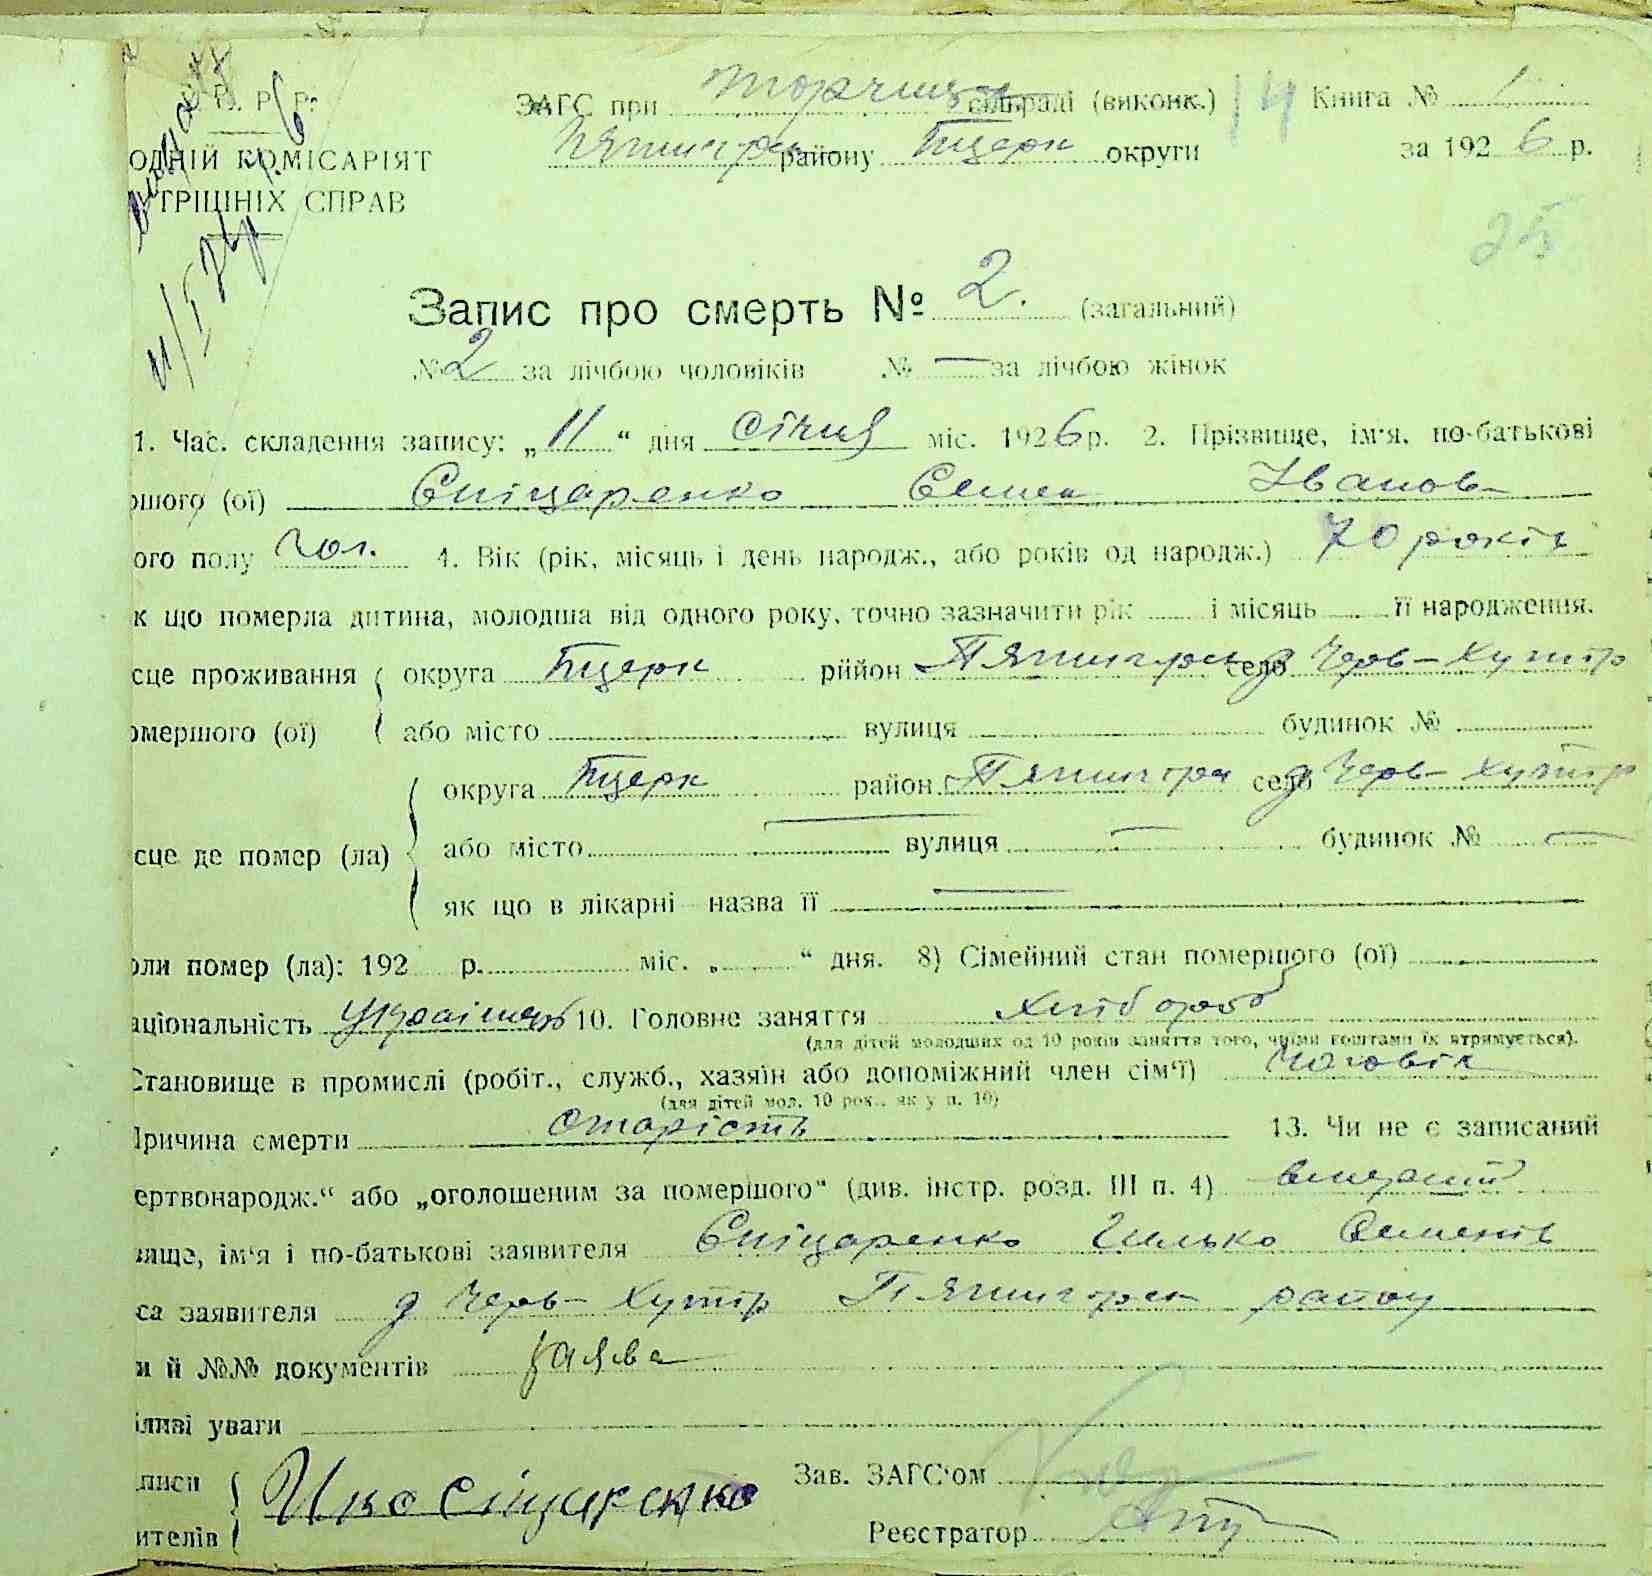 ЗАГС при Торчицьк сільраді (виконк.) 14 Книга № 1
ОДНІЙ КОМІСАРІЯТ Пятигорськ району Бцерк округи за 1926 р.
ТРІШНІХ СПРАВ
25
Запис про смерть № 2. (загальний)
№ 2 за лічбою чоловіків № — за лічбою жінок
1. Час. складення запису: „11“ дня січня міс. 1926 р. 2. Прізвище, ім'я. по-батькові
ршого (ої) Спіцаренко Семен Іванов
ого полу чол. 4. Вік (рік, місяць і день народж., або років од народж.) 70 років
к що померла дитина, молодша від одного року, точно зазначити рік і місяць її народження.
сце проживання округа Бцерк район Пятигорськ село д Черв-Хутір
омершого (ої) або місто вулиця будинок №
округа Бцерк район Пятигорськ село д Черв-Хутір
сце де помер (ла) або місто — вулиця — будинок № —
як що в лікарні назва її —
оли помер (ла): 192 р. міс. „ “ дня. 8) Сімейний стан помершого (ої)
аціональність українець 10. Головне заняття Хлібороб
(для дітей молодших од 10 років заняття того, чиїми коштами їх втримується).
Становище в промислі (робіт., служб., хазяїн або допоміжний член сім'ї) чоловік
(для дітей мол. 10 рок., як у п. 10)
Причина смерти старість 13. Чи не є записаний
ертвонародж.“ або „оголошеним за помершого“ (див. інстр. розд. III п. 4) вмерший
ище, ім'я і по-батькові заявителя Спіцаренко Ілько Семенів
са заявителя д Черв-Хутір Пятигорськ району
и й №№ документів заява
ливі уваги
писи Зав. ЗАГС'ом
ителів Реєстратор